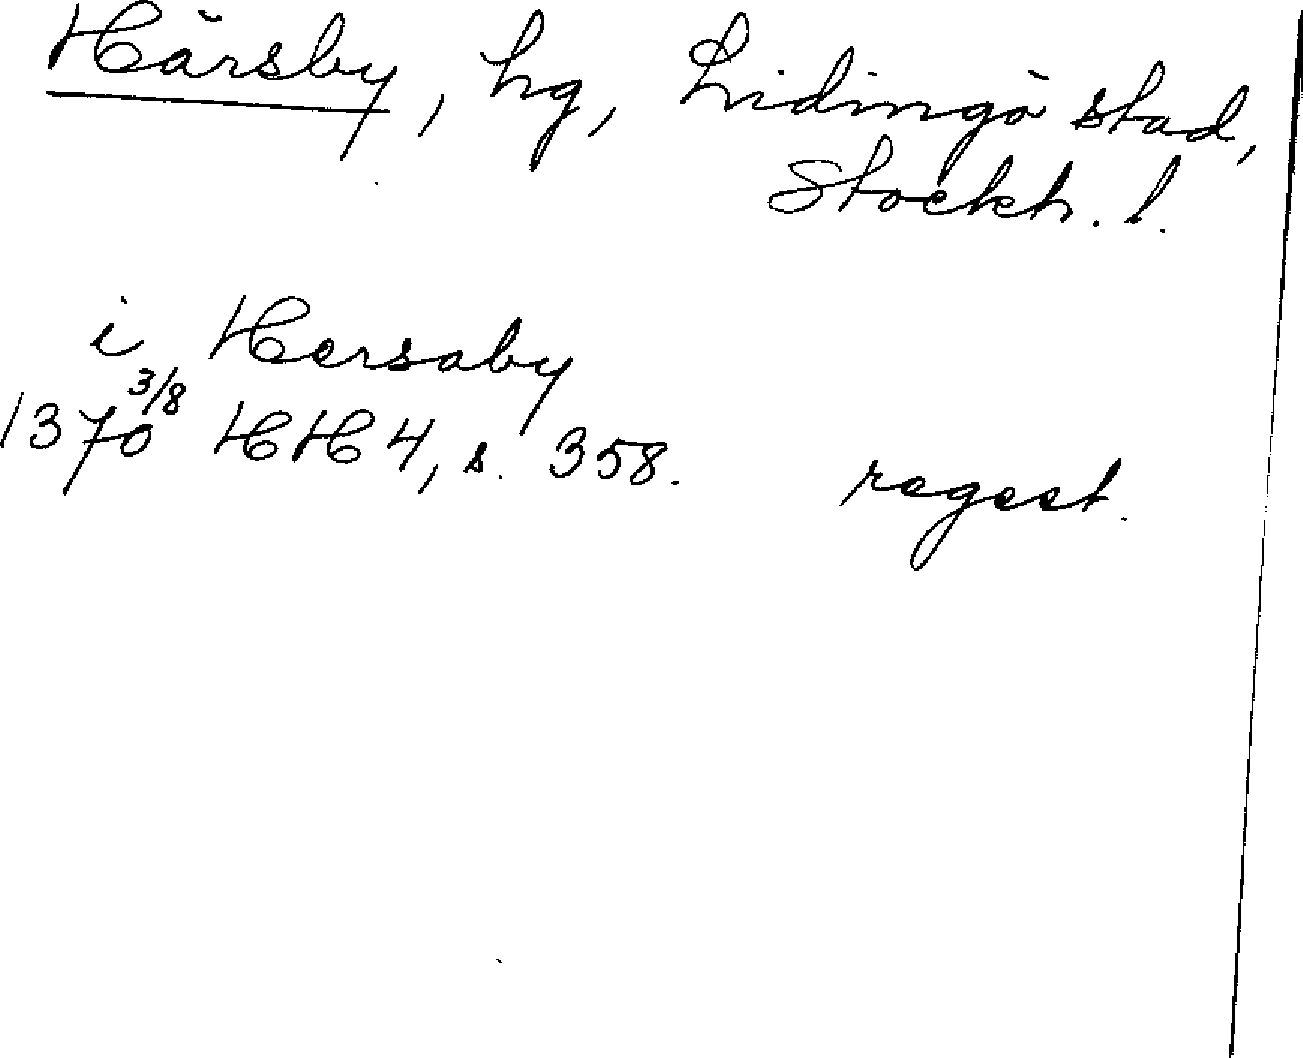 Härsby, hg, Lidingö stad,
Stockh. l.
i Hersaby
1370 3/8 HH 4, s. 358. regest.